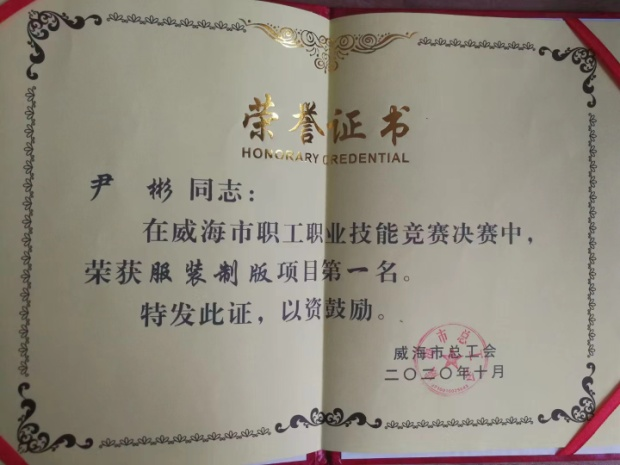 荣誉证书
HONORARY CREDENTIAL
尹 彬 同志：
在威海市职工职业技能竞赛决赛中，
荣获服装制版项目第一名。
特发此证，以资鼓励。
威海市总工会
二〇二〇年十月